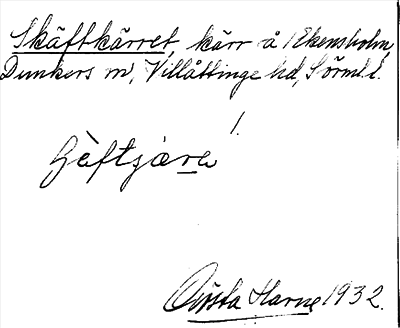 Skäftkärret, kärr å Ekensholm,
Dunkers sn, Villåttinge hd, Sörml. l.
1.
Gösta Harne 1932.